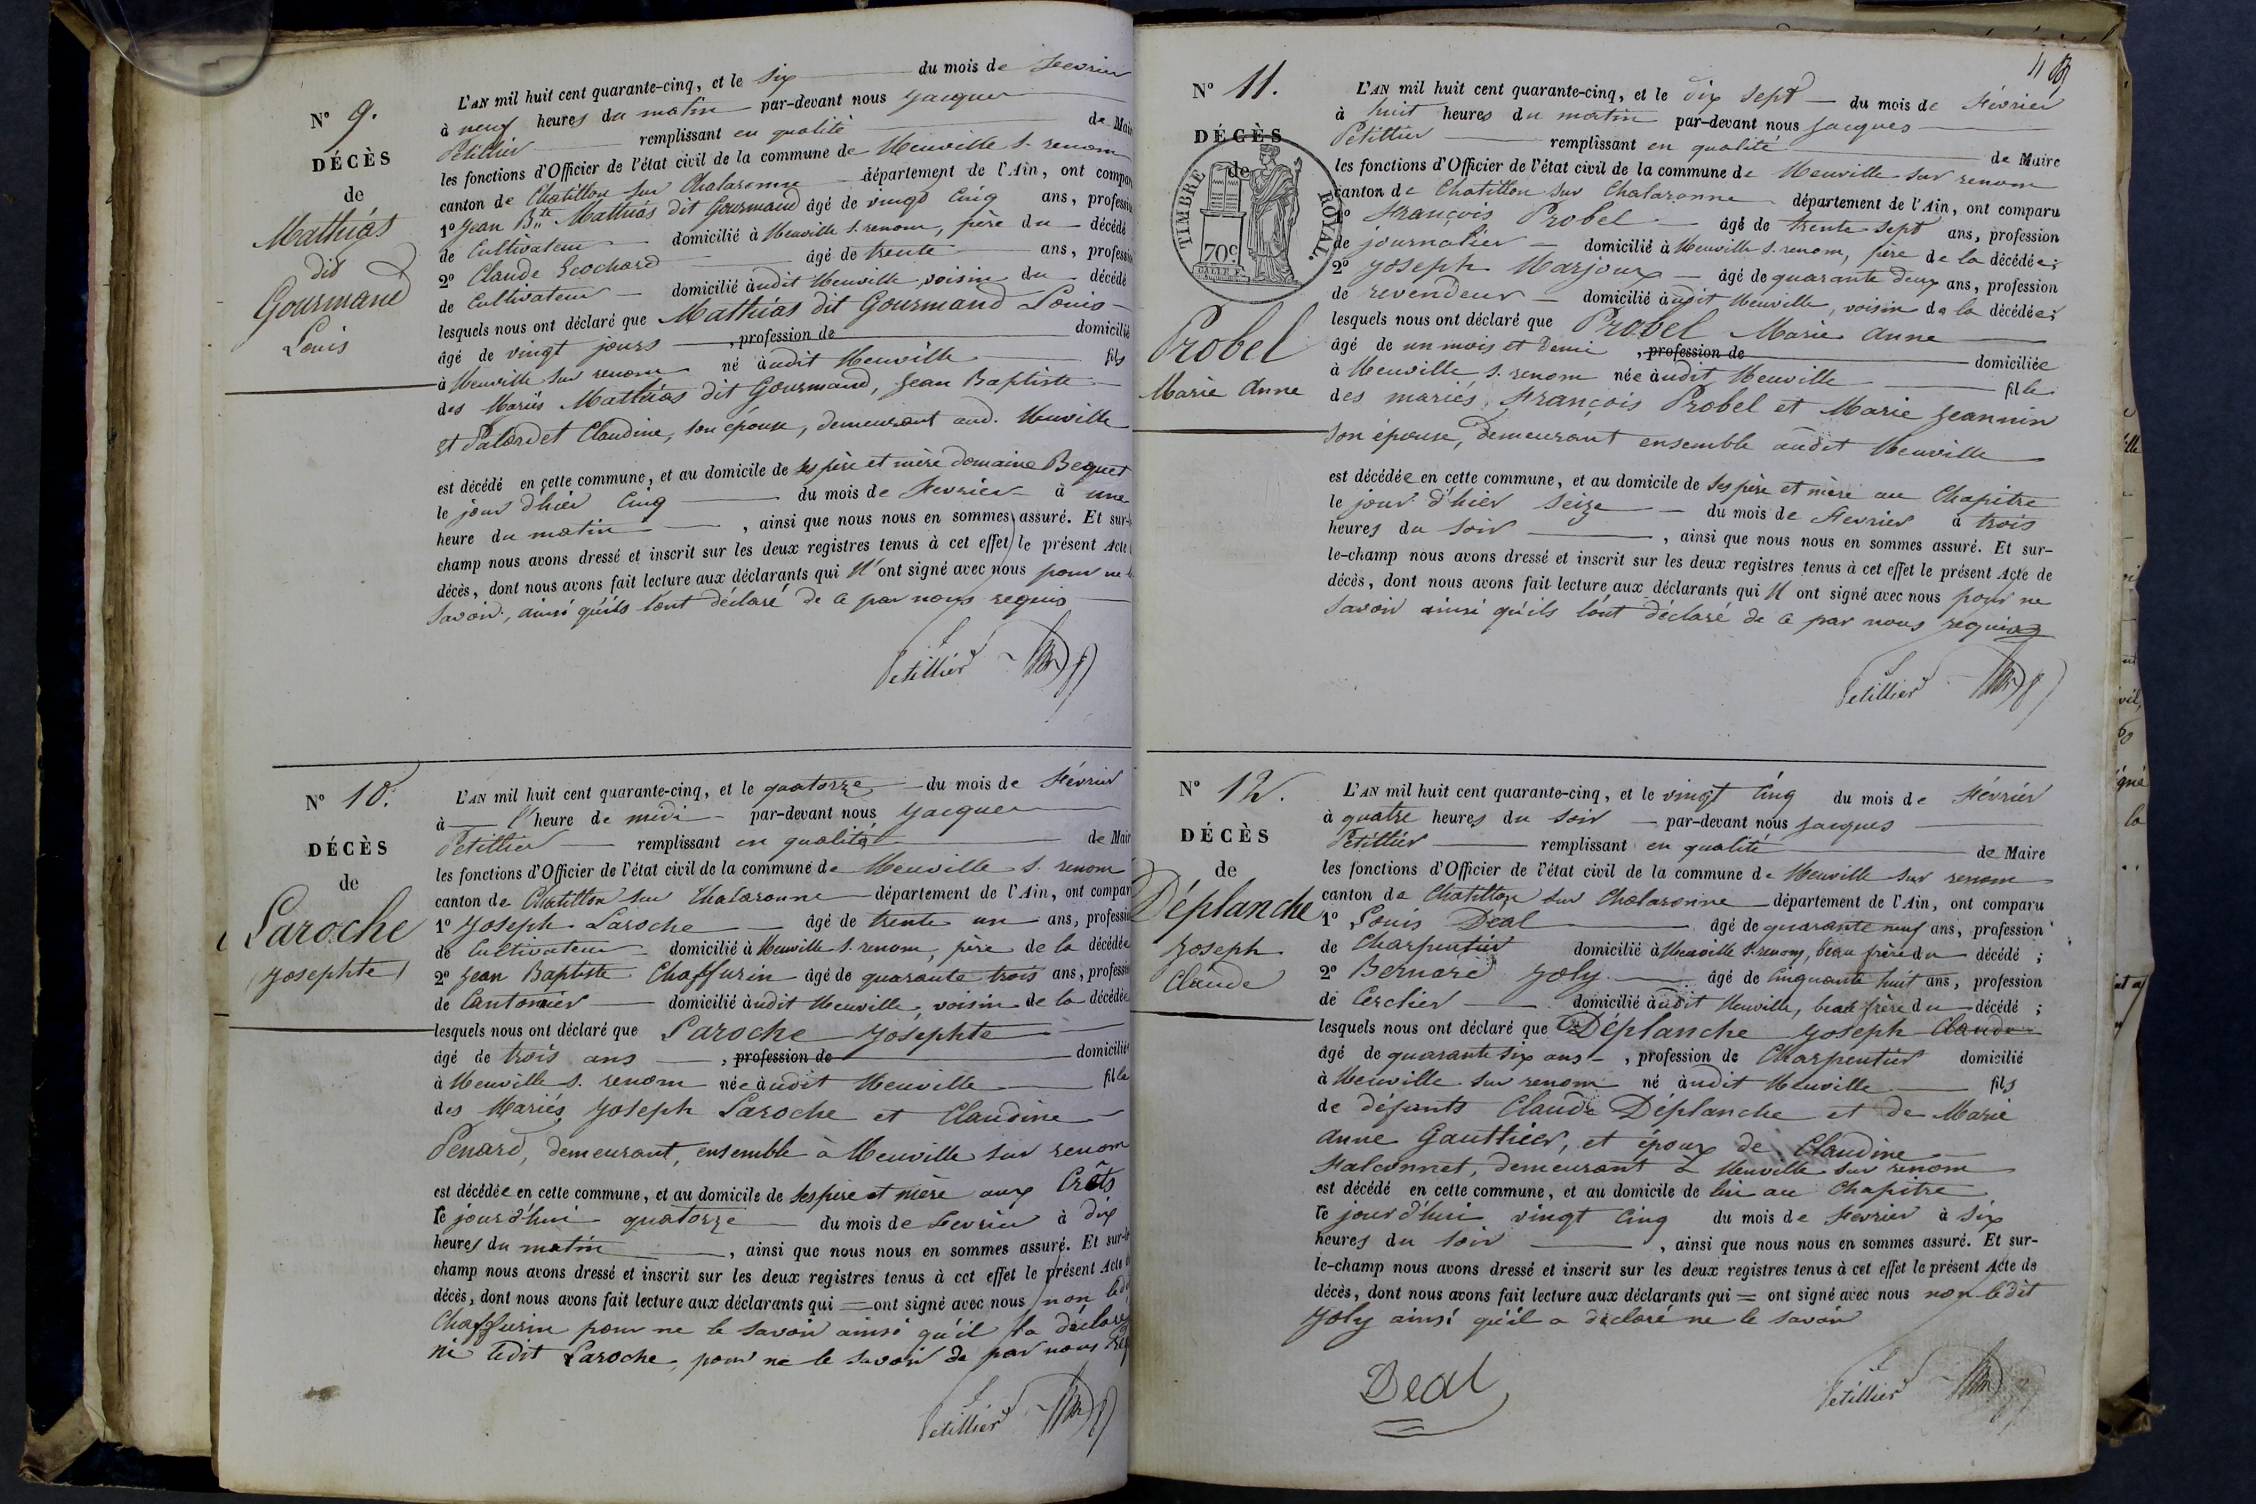 N° 9.
DÉCÈS
de
Mathias
dit
Gourmand
Louis
L'AN mil huit cent quarante-cinq, et le six du mois de Fevrier
à neuf heures du matin par-devant nous Jacques
Petillier remplissant en qualité de Mair
les fonctions d'Officier de l'état civil de la commune de Neuville s. renom
canton de Chatillon sur Chalaronne département de l'Ain, ont compar
1° Jean Bte Mathias dit Gourmand âgé de vingt cinq ans, profession
de Cultivateur domicilié à Neuville s. renom, père du décédé
2° Claude Ecochard âgé de trente ans, profession
de Cultivateur domicilié àudit Neuville, voisin du décédé
lesquels nous ont déclaré que Mathias dit Gourmand Louis
âgé de vingt jours , profession de domicilié
à Neuville sur renom né àudit Neuville fils
des Mariés Mathias dit Gourmand, Jean Baptiste
et Claudine, son épouse, demeurant aud. Neuville
est décédé en cette commune, et au domicile de ses père et mère domaine Bequet
le jour d'hier Cinq du mois de Fevrier à une
heure du matin , ainsi que nous nous en sommes assuré. Et sur-le
champ nous avons dressé et inscrit sur les deux registres tenus à cet effet le présent Acte
décès, dont nous avons fait lecture aux déclarants qui N'ont signé avec nous pour ne le
savoir, ainsi qu'ils l'ont déclaré de ce par nous requis
Petillier
N° 10.
DÉCÈS
de
Laroche
Josephte
L'AN mil huit cent quarante-cinq, et le quatorze du mois de Février
à l'heure de midi par-devant nous Jacques
Petillier remplissant en qualité de Mair
les fonctions d'Officier de l'état civil de la commune de Neuville s. renom
canton de Chatillon sur Chalaronne département de l'Ain, ont compar
1° Joseph Laroche âgé de trente un ans, profession
de Cultivateur domicilié à Neuville s. renom, père de la décédée
2° Jean Baptiste Chaffurin âgé de quarante trois ans, profession
de Cantonnier domicilié àudit Neuville, voisin de la décédée
lesquels nous ont déclaré que Laroche Josephte
âgé de trois ans , profession de domicilié
à Neuville s. renom née àudit Neuville fille
des Mariés Joseph Laroche et Claudine
Penard, demeurant, ensemble à Neuville sur renom
est décédée en cette commune, et au domicile de ses père et mère aux Crôts
le jourd'hui quatorze du mois de Fevrier à dix
heures du matin , ainsi que nous nous en sommes assuré. Et sur-le
champ nous avons dressé et inscrit sur les deux registres tenus à cet effet le présent Acte
décès, dont nous avons fait lecture aux déclarants qui = ont signé avec nous non led
Chaffurin pour ne le savoir ainsi qu'il l'a déclaré
ni ledit Laroche, pour ne le savoir de par nous
Petillier
N° 11.
DÉCÈS
de
TIMBRE ROYAL.
70c
Probel
Marie Anne
L'AN mil huit cent quarante-cinq, et le dix sept du mois de Février
à huit heures du matin par-devant nous Jacques
Petillier remplissant en qualité de Maire
les fonctions d'Officier de l'état civil de la commune de Neuville sur renom
canton de Chatillon sur Chalaronne département de l'Ain, ont comparu
1° François Probel âgé de trente sept ans, profession
de journalier domicilié à Neuville s. renom, père de la décédée;
2° Joseph Marjoux âgé de quarante deux ans, profession
de revendeur domicilié àudit Neuville, voisin de la décédée;
lesquels nous ont déclaré que Probel Marie Anne
âgé de un mois et demi , profession de domiciliée
à Neuville s. renom née àudit Neuville fille
des mariés François Probel et Marie Jeannin
son épouse, demeurant ensemble audit Neuville
est décédée en cette commune, et au domicile de ses père et mère au Chapitre
le jour d'hier seize du mois de Fevrier à trois
heures du soir , ainsi que nous nous en sommes assuré. Et sur-
le-champ nous avons dressé et inscrit sur les deux registres tenus à cet effet le présent Acte de
décès, dont nous avons fait lecture aux déclarants qui N'ont signé avec nous pour ne
savoir ainsi qu'ils l'ont déclaré de ce par nous requis
Petillier
N° 12.
DÉCÈS
de
Déplanche
Joseph
Claude
L'AN mil huit cent quarante-cinq, et le vingt cinq du mois de Février
à quatre heures du soir par-devant nous Jacques
Petillier remplissant en qualité de Maire
les fonctions d'Officier de l'état civil de la commune de Neuville sur renom
canton de Chatillon sur Chalaronne département de l'Ain, ont comparu
1° Louis Déal âgé de quarante neuf ans, profession
de Charpentier domicilié à Neuville s. renom, beau frère du décédé ;
2° Bernard Joly âgé de cinquante huit ans, profession
de Cerclier domicilié àudit Neuville, beau frère du décédé ;
lesquels nous ont déclaré que Déplanche Joseph Claude
âgé de quarante six ans , profession de Charpentier domicilié
à Neuville sur renom né àudit Neuville fils
de défunts Claude Déplanche et de Marie
Anne Gauthier, et époux de Claudine
Falconnet, demeurant à Neuville sur renom
est décédé en cette commune, et au domicile de lui au Chapitre
le jourd'hui vingt cinq du mois de Fevrier à six
heures du soir , ainsi que nous nous en sommes assuré. Et sur-
le-champ nous avons dressé et inscrit sur les deux registres tenus à cet effet le présent Acte de
décès, dont nous avons fait lecture aux déclarants qui = ont signé avec nous non ledit
Joly ainsi qu'il a déclaré ne le savoir
Deal
Petillier